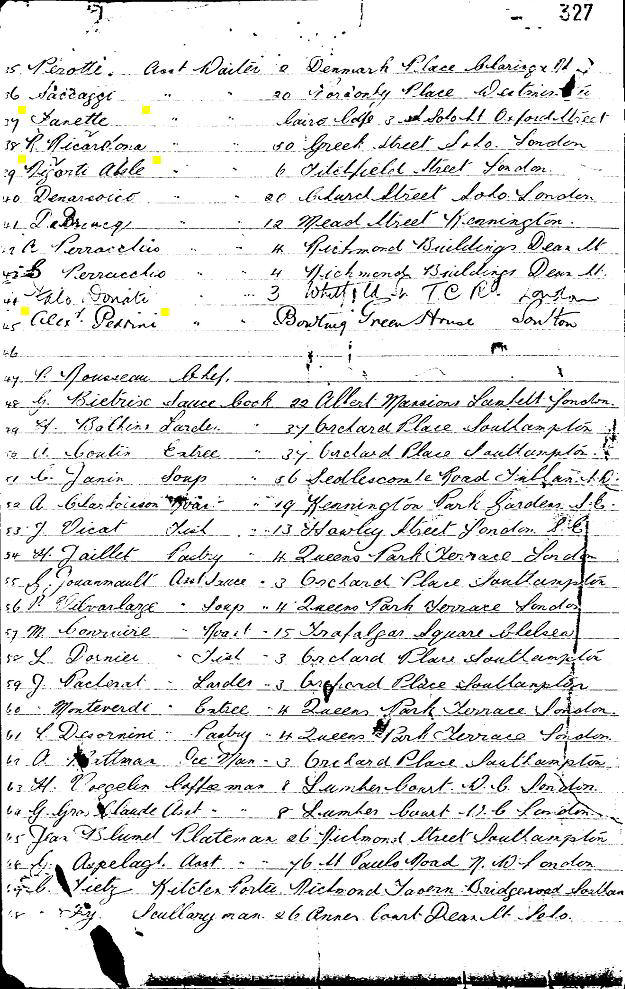 327
35 Perotti. Asst Waiter 2 Denmark Place Charing X Rd
36 Saccaggi " " 20 Place Westminster
37 Zanette " " Cairo Cafe 3 Soho St Oxford Street
38 R. Ricardona " " 50 Greek Street Soho. London
39 Rigonti Abele " " 6 Titchfield Street London.
40 Denarsico " " 20 Church Street Soho. London
41 " " 12 Mead Street Kennington.
42 C. Perracchio " " 4 Richmond Buildings Dean St
43 S Perracchio " " 4 Richmond Buildings Dean St.
44 Italo Donati " " 3 Whitfield St T.C.R. London
45 Alex. Pedrini " " Bowling Green House Soton
46
47 P. Rousseau Chef.
48 G. Bietrix Sauce Cook 22 Albert Mansions Lambeth London.
49 H. Bolhins Larder " 37 Orchard Place Southampton
50 A. Coutin Entree " 37 Orchard Place Southampton.
51 C. Janin Soup " 56 Sedlescombe Road Fulham S.W.
52 A Roast " 19 Kennington Park Gardens S.E.
53 J. Vicat Fish " 13 Hawley Street London S.E
54 H. Jaillet Pastry " 4 Queens Park Terrace London
55 G. Jouanmault Asst Sauce " 3 Orchard Place Southampton
56 P. Vilvarlarge " Soup " 4 Queens Park Terrace London
57 M. Cornaire " Roast " 15 Trafalgar Square Chelsea
58 L Dornier " Fish " 3 Orchard Place Southampton
59 J. Pacherat " Larder " 3 Orchard Place Southampton
60 " Monteverdi " Entree " 4 Queens Park Terrace London.
61 L Desornini " Pastry " 4 Queens Park Terrace London.
62 A. Ice Man " 3 Orchard Place Southampton.
63 H. Voegelin Coffee man 8 Lumber Court W.C London.
64 G. Gros Claude Asst " " 8 Lumber Court W.C London
65 Jean Blumet Plateman 26 Richmond Street Southampton
66 G. Aspelagt Asst " " 76 St Pauls Road N.W London
67 C. Tietz Kitchen Porter Richmond Tavern Bridgeroad Southam
68 Scullary man. 26 Annes Court Dean St. Soho.